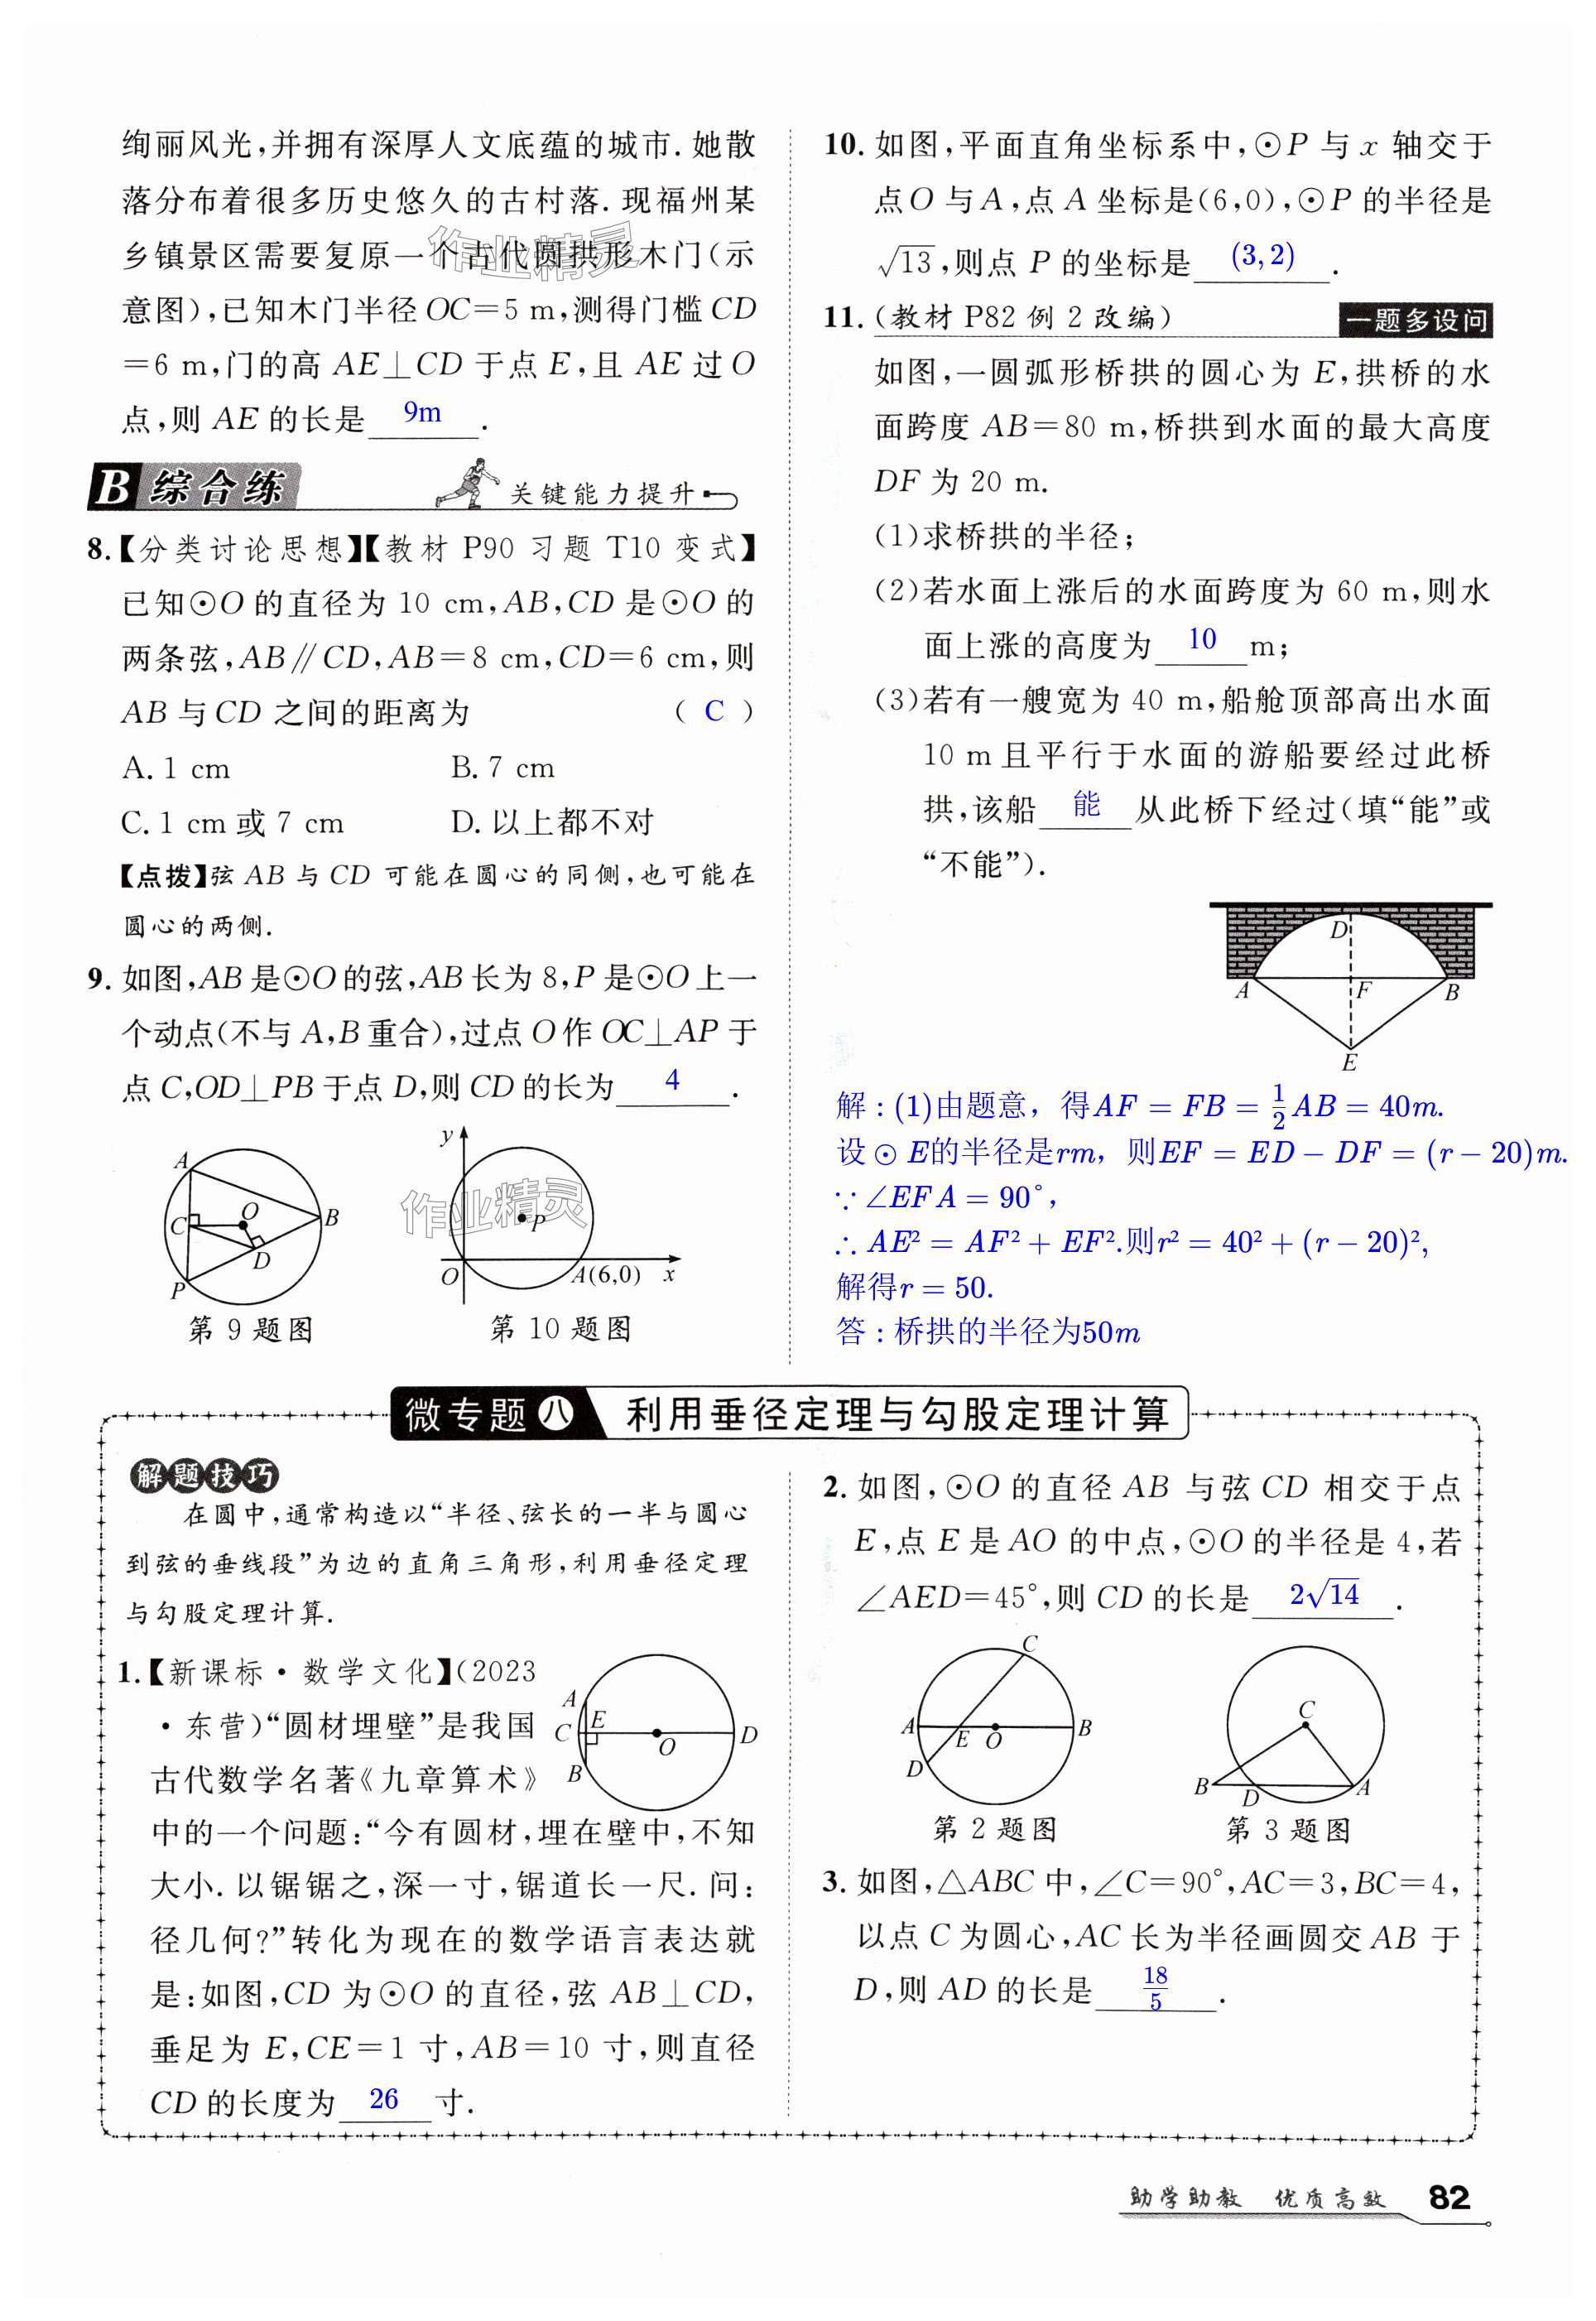 绚丽风光,并拥有深厚人文底蕴的城市.她散
落分布着很多历史悠久的古村落.现福州某
乡镇景区需要复原一个古代圆拱形木门(示
意图),已知木门半径 OC=5 m,测得门槛 CD
=6 m,门的高 AE⊥CD 于点 E,且 AE 过 O
点,则 AE 的长是 9m .
B 综合练 关键能力提升
8.【分类讨论思想】【教材 P90 习题 T10 变式】
已知⊙O 的直径为 10 cm,AB,CD 是⊙O 的
两条弦,AB∥CD,AB=8 cm,CD=6 cm,则
AB 与 CD 之间的距离为 ( C )
A. 1 cm B. 7 cm
C. 1 cm 或 7 cm D. 以上都不对
【点拨】弦 AB 与 CD 可能在圆心的同侧,也可能在
圆心的两侧.
9. 如图,AB 是⊙O 的弦,AB 长为 8,P 是⊙O 上一
个动点(不与 A,B 重合),过点 O 作 OC⊥AP 于
点 C,OD⊥PB 于点 D,则 CD 的长为 4 .
A
B
C
O
D
P
第 9 题图
y
P
O
A(6,0)
x
第 10 题图
作业精灵
作业精灵
10. 如图,平面直角坐标系中,⊙P 与 x 轴交于
点 O 与 A,点 A 坐标是(6,0),⊙P 的半径是
√13,则点 P 的坐标是 (3,2) .
11. (教材 P82 例 2 改编) 一题多设问
如图,一圆弧形桥拱的圆心为 E,拱桥的水
面跨度 AB=80 m,桥拱到水面的最大高度
DF 为 20 m.
(1)求桥拱的半径;
(2)若水面上涨后的水面跨度为 60 m,则水
面上涨的高度为 10 m;
(3)若有一艘宽为 40 m,船舱顶部高出水面
10 m 且平行于水面的游船要经过此桥
拱,该船 能 从此桥下经过(填“能”或
“不能”).
D
A
F
B
E
解:(1)由题意，得AF=FB=1/2AB=40m.
设⊙E的半径是rm，则EF=ED−DF=(r−20)m.
∵∠EFA=90°,
∴AE²=AF²+EF².则r²=40²+(r−20)²,
解得r=50.
答:桥拱的半径为50m
微专题八 利用垂径定理与勾股定理计算
解题技巧
在圆中,通常构造以“半径、弦长的一半与圆心
到弦的垂线段”为边的直角三角形,利用垂径定理
与勾股定理计算.
1.【新课标·数学文化】(2023
·东营)“圆材埋壁”是我国
古代数学名著《九章算术》
中的一个问题:“今有圆材,埋在壁中,不知
大小.以锯锯之,深一寸,锯道长一尺.问:
径几何?”转化为现在的数学语言表达就
是:如图,CD 为⊙O 的直径,弦 AB⊥CD,
垂足为 E,CE=1 寸,AB=10 寸,则直径
CD 的长度为 26 寸.
A
C
E
O
D
B
2. 如图,⊙O 的直径 AB 与弦 CD 相交于点
E,点 E 是 AO 的中点,⊙O 的半径是 4,若
∠AED=45°,则 CD 的长是 2√14 .
C
A
E
O
B
D
第 2 题图
C
B
D
A
第 3 题图
3. 如图,△ABC 中,∠C=90°,AC=3,BC=4,
以点 C 为圆心,AC 长为半径画圆交 AB 于
D,则 AD 的长是 18/5 .
助学助教 优质高效 82